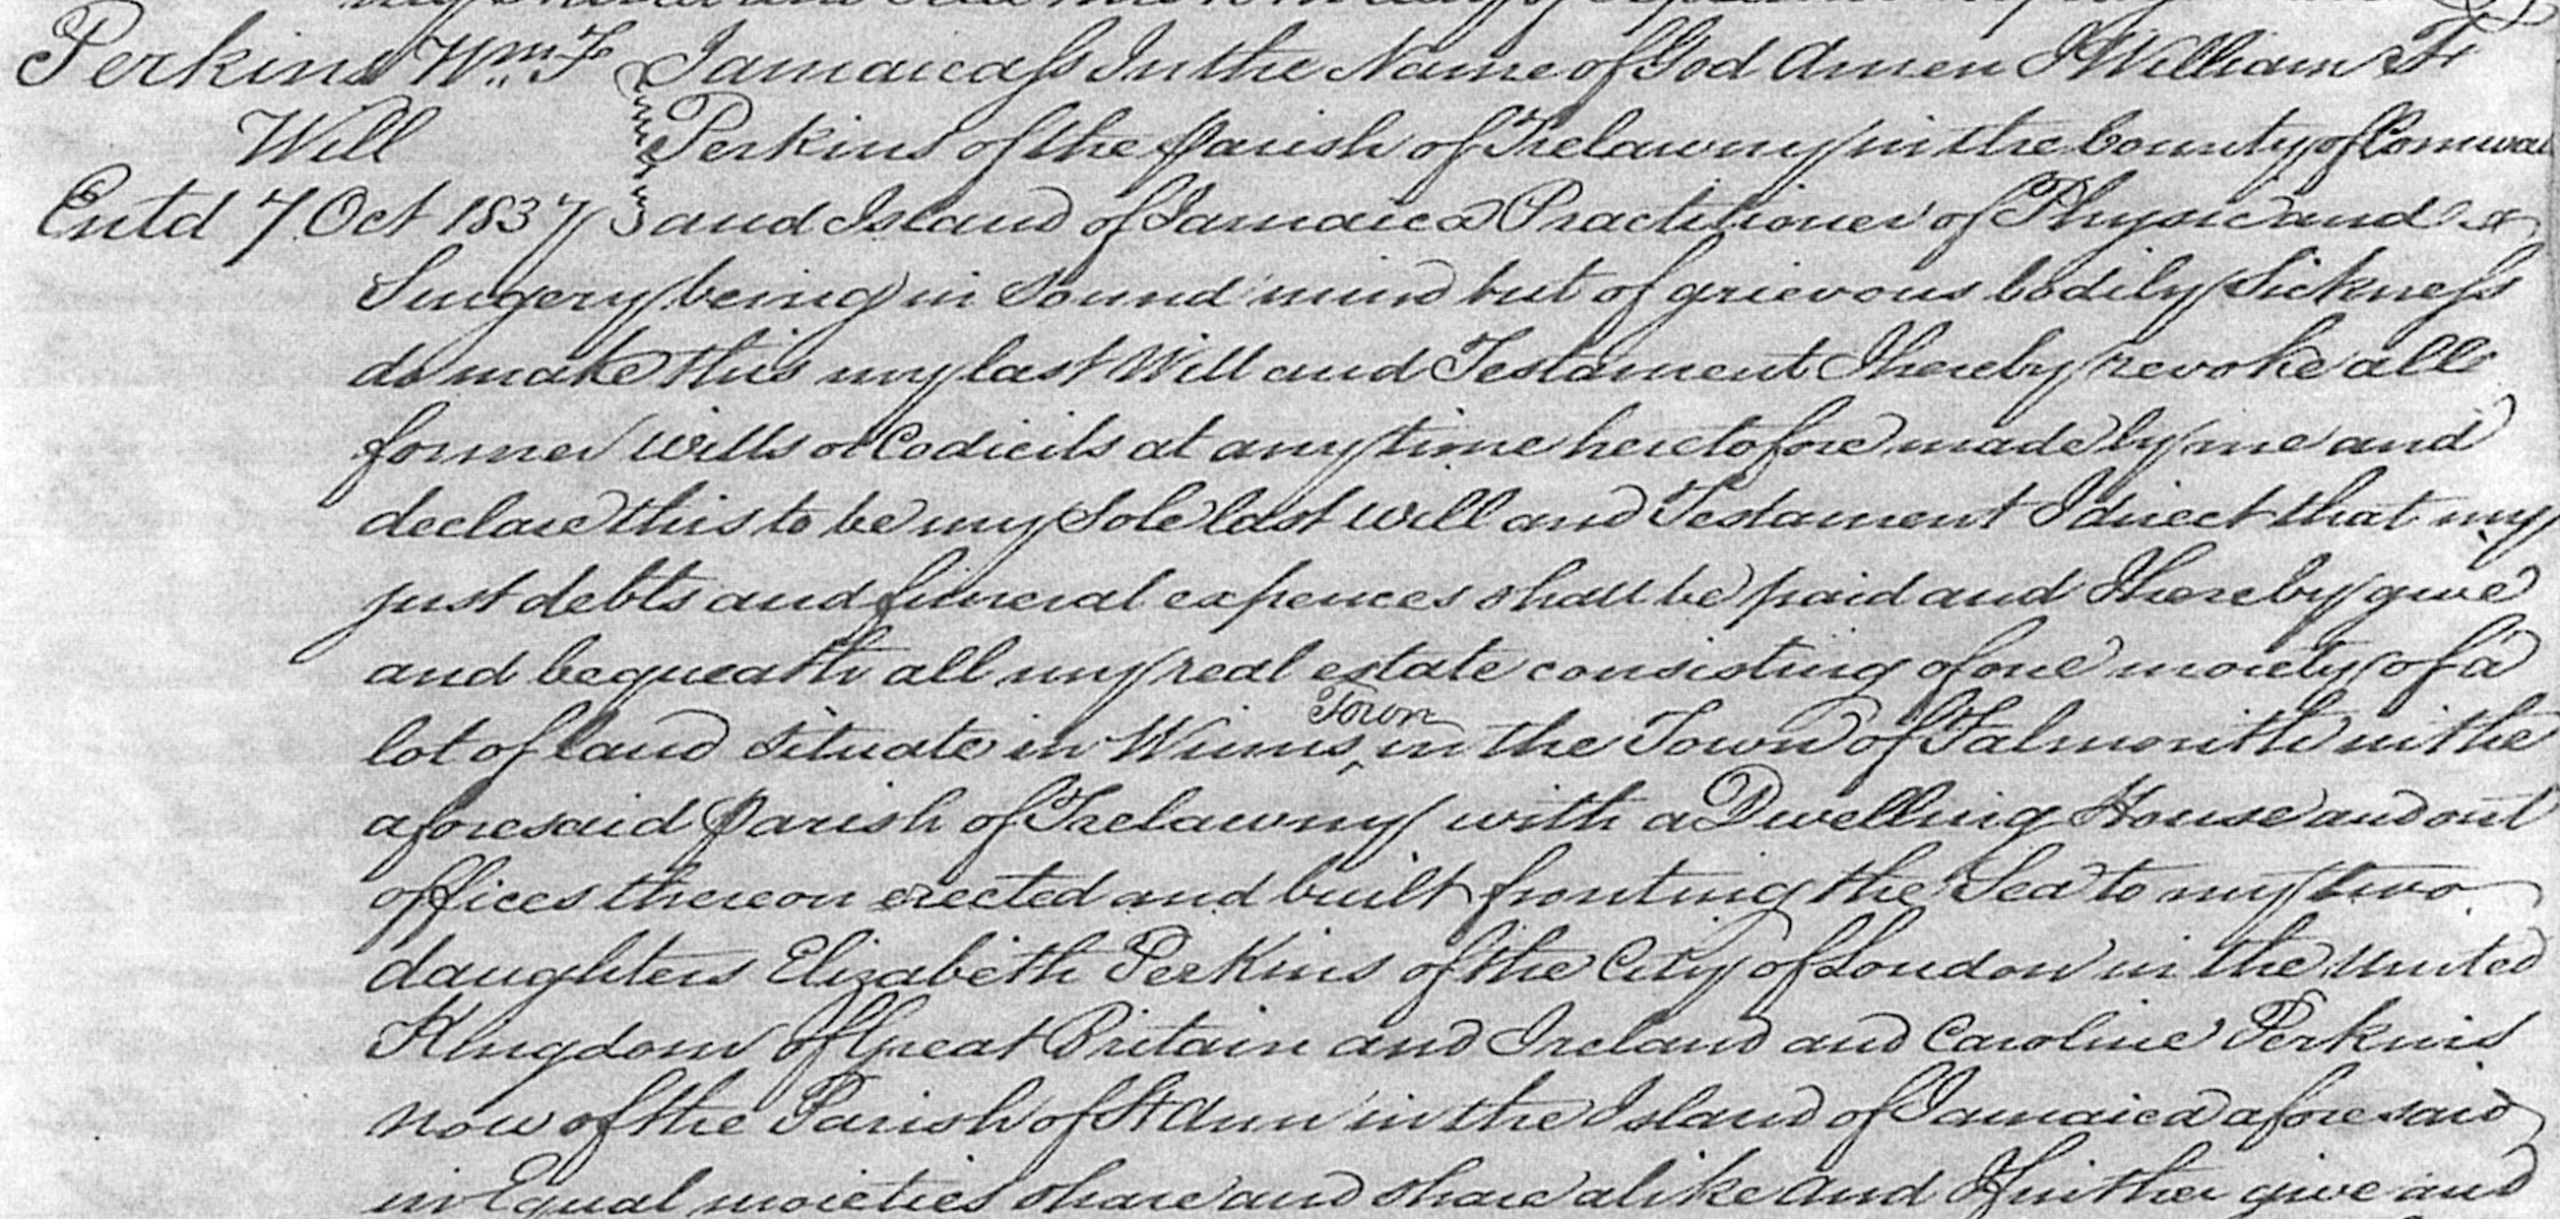 Perkins Wm F Jamaica ss In the Name of God Amen I William F
Will Perkins of the Parish of Trelawny in the County of Cornwal
Entd 7 Oct 1837 and Island of Jamaica Practitioner of Physic and
Surgery being in sound mind but of grievous bodily Sickness
do make this my last Will and Testament I hereby revoke all
former wills or Codicils at any time heretofore made by me and
declare this to be my Sole last will and Testament I direct that my
just debts and funeral expences shall be paid and I hereby give
and bequeath all my real estate consisting of one moiety of a
lot of land situate in Wimms Town in the Town of Falmouth in the
aforesaid Parish of Trelawny with a Dwelling House and out
offices thereon erected and built fronting the Sea to my two
daughters Elizabeth Perkins of the City of London in the United
Kingdom of Great Britain and Ireland and Caroline Perkins
now of the Parish of St Ann in the Island of Jamaica aforesaid
in Equal moieties share and share alike and I further give and